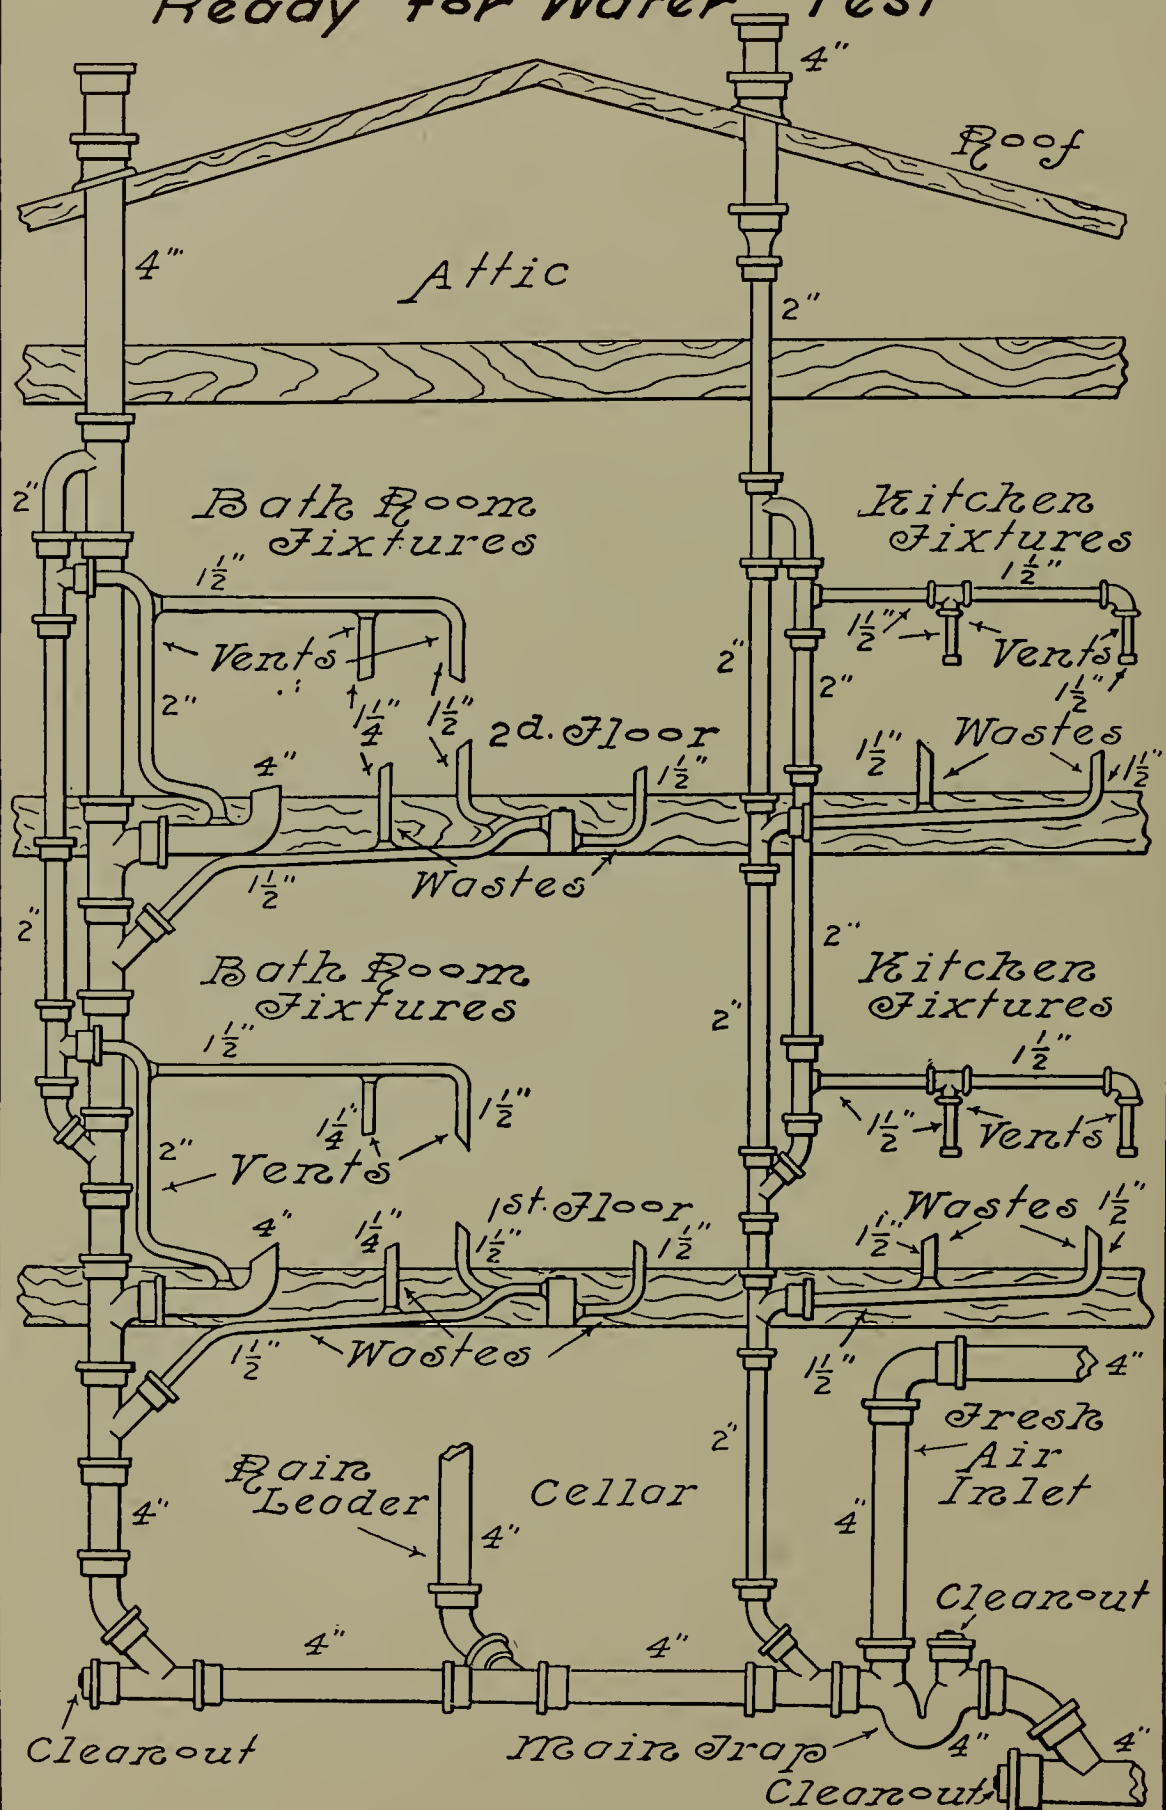 Ready for Water Test
4"
Roof
4"'
Attic
2"
2"
Bath Room
Fixtures
Kitchen
Fixtures
1½"
1½"
1½"
Vents
Vents
2"
2"
2"
1½"
1¼"
1½"
2d. Floor
Wastes
4"
1½"
1½"
1½"
1½"
Wastes
2"
2"
Bath Room
Fixtures
Kitchen
Fixtures
2"
1½"
1½"
1¼"
1½"
1½"
Vents
2"
Vents
1st. Floor
Wastes
1½"
4"
1¼"
1½"
1½"
1½"
1½"
Wastes
1½"
4"
Fresh
Air
Inlet
2"
Rain
Leader
Cellar
4"
4"
4"
Cleanout
4"
4"
Cleanout
Main Trap
4"
4"
Cleanout